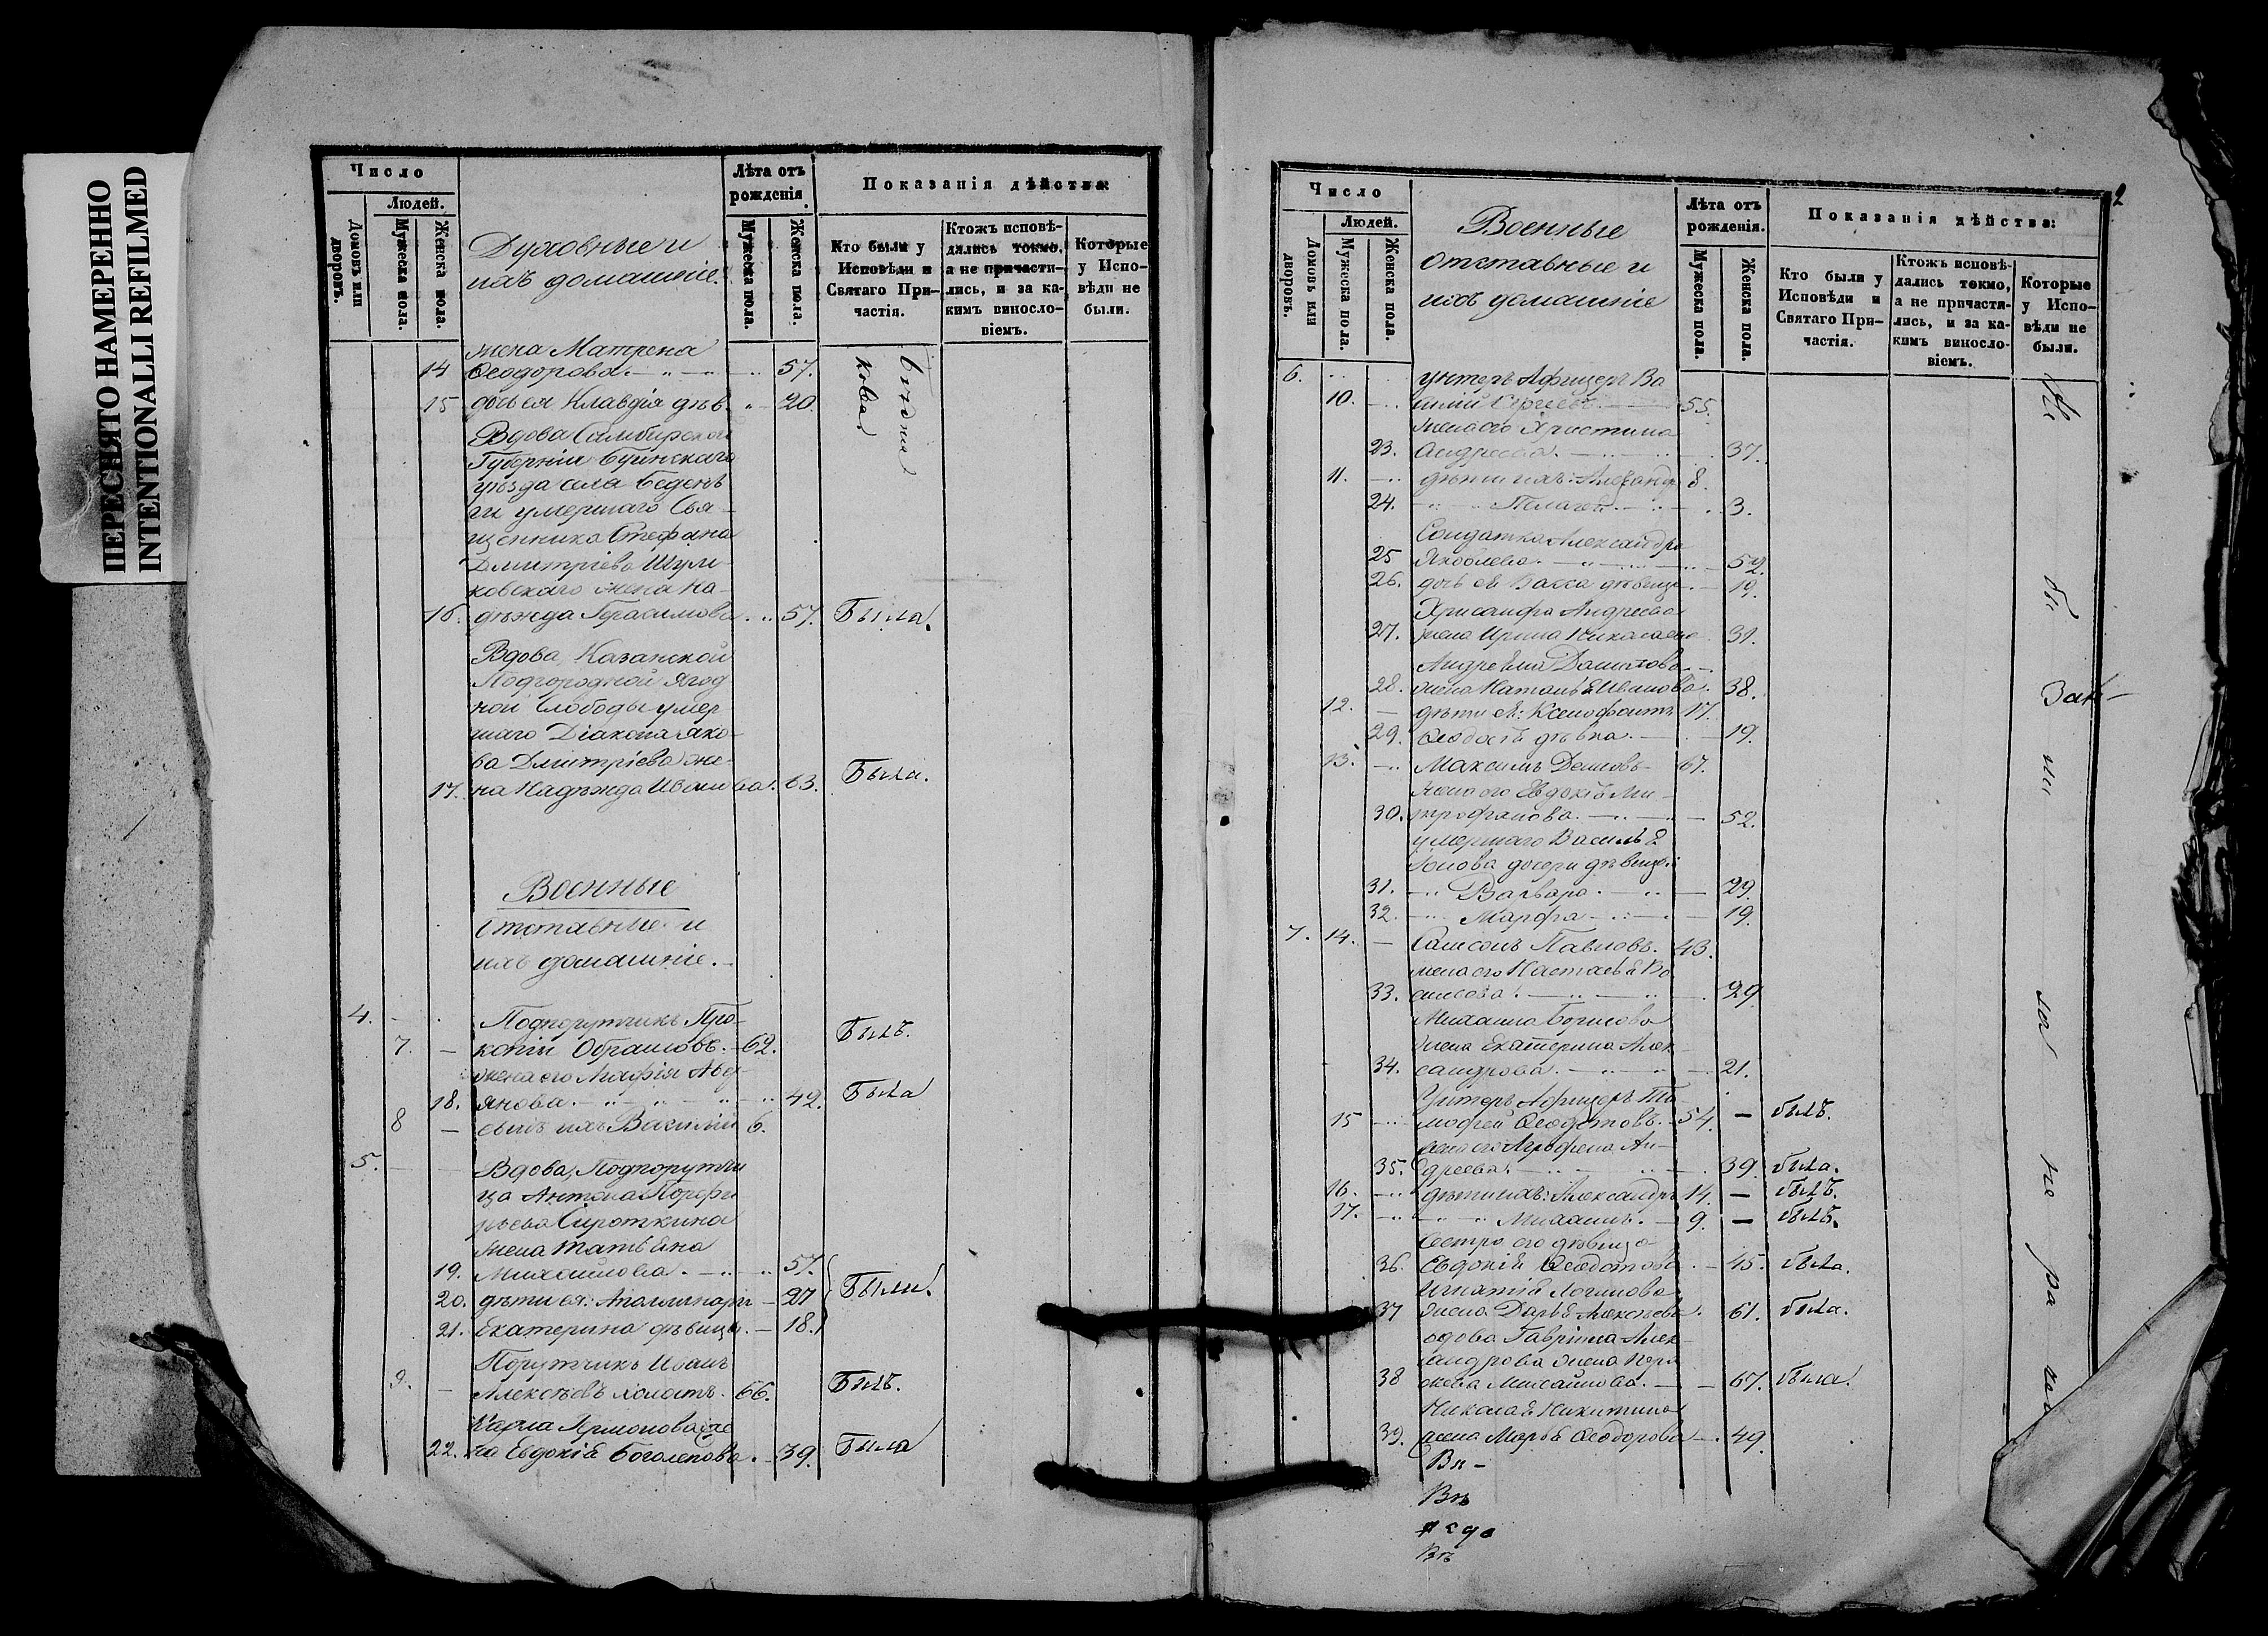 ПЕРЕСНЯТО НАМЕРЕННО
INTENTIONALLI REFILMED
Число
Людей.
Домовъ или дворовъ.
Мужеска пола.
Женска пола.
Духовные и
ихъ домашніе.
Лѣта отъ
рожденія.
Мужеска пола.
Женска пола.
Показанія дѣйства:
Кто были у
Исповѣди и
Святаго При-
частія.
Ктожъ исповѣ-
дались токмо,
а не причасти-
лись, и за ка-
кимъ винословіемъ.
Которые
у Испо-
вѣди не
были.
жена Матрена
14 Ѳеодорова 57.
15 дочь ея Клавдія дѣв. 20.
Вдова Симбирской
Губерніи Буинскаго
уѣзда села Беденъ
ги умершаго Свя-
щенника Стефана
Дмитріева
жена На-
16. дѣжда Герасимова 57. Была.
Вдова, Казанской
Подгородной Ягод
ной Слободы умер
шаго Діакона Яко-
ва Дмитріева же-
17. на Надѣжда Иванова. 63. Была.
Военные
Отставные и
ихъ домашніе.
4. Подпорутчикъ Про-
7. копій 62. Былъ.
жена его Агафія
18. 42. Была
8 сынъ ихъ Василій 6.
5. Вдова, Подпорутчи
ка Антона Порфи
рьева Сироткина
жена Татьяна
19. Михайлова. 57.
20. дѣти ея: Аполлинарія 27 Были.
21. Екатерина дѣвицы. 18.
Порутчикъ Иванъ
9. Алексѣевъ холостъ. 66. Былъ.
Карпа же
22. на Евдокія Боголепова. 39. Была
2
Число
Людей.
Домовъ или дворовъ.
Мужеска пола.
Женска пола.
Военные
отставные и
ихъ домашніе
Лѣта отъ
рожденія.
Мужеска пола.
Женска пола.
Показанія дѣйства:
Кто были у
Исповѣди и
Святаго При-
частія.
Ктожъ исповѣ-
дались токмо,
а не причасти-
лись, и за ка-
кимъ винословіемъ.
Которые
у Испо-
вѣди не
были.
6. унтеръ Афицеръ Ва
10. силій Сергіевъ 55.
жена его Христина
23. Андреева. 37.
11. дѣти ихъ: Александръ 8.
24. Пелагея 3.
Солдатка Александра
25 Яковлева. 52.
26. дочь ея Васса дѣвица 19.
Хрисанфа Андреева
27. жена Ирина Николаева 31.
Андреяна Данилова
28. жена Наталья Иванова. 38.
12. дѣти ея: Ксенофонтъ 17.
29. Ѳеодосья дѣвка. 19.
13. Максимъ 67.
жена его Евдокія Ми-
30. трофанова. 52.
умершаго Василья
дочери дѣвицы
31. Варвара. 29.
32. Марфа 19.
7. 14. Самсонъ Павловъ. 43.
жена его Настасья Ва
33. 29
Михаила Борисова
жена Екатерина Алек-
34. сандрова. 21.
Унтеръ Афицеръ Ти-
15 мофей Ѳеодотовъ. 54. былъ.
жена его Аграфена Ан-
35. дреева. 39. была.
16. дѣти ихъ: Александръ 14. былъ.
17. Михаилъ. 9. былъ.
Сестра его дѣвица
36. Евдокія Ѳеодотова 45. была.
Игнатія Логинова
37 жена Дарья Алексѣева. 61. была.
вдова Гавріила Алек-
38 сандрова жена
Михайлова. 67. была.
Николая Никитина
39. жена Марья Ѳеодорова 49.